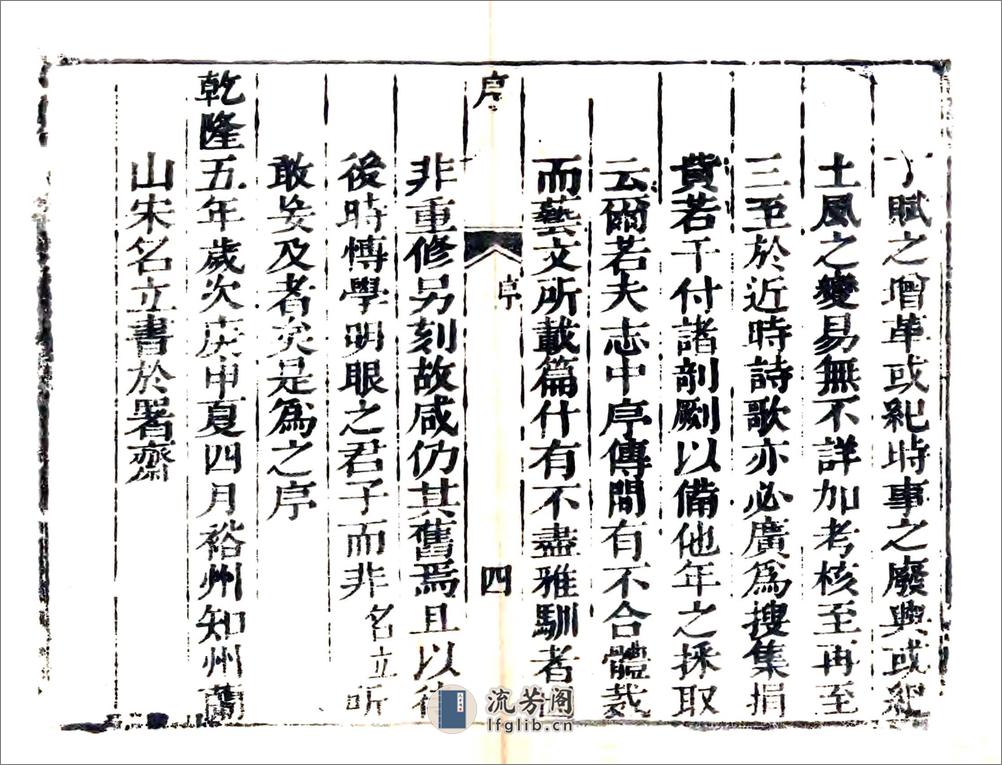 丁賦之增革或紀時事之廢興或紀
土風之變易無不詳加考核至再至
三至於近時詩歌亦必廣為搜集捐
貲若干付諸剞劂以備他年之採取
云爾若夫志中序傳間有不合體裁
而藝文所載篇什有不盡雅馴者
序
序
四
非重修另刻故咸仍其舊焉且以待
後時博學明眼之君子而非名立所
敢妄及者矣是為之序
乾隆五年歲次庚申夏四月裕州知州蘭
山宋名立書於署齋
流芳阁
lfglib.cn